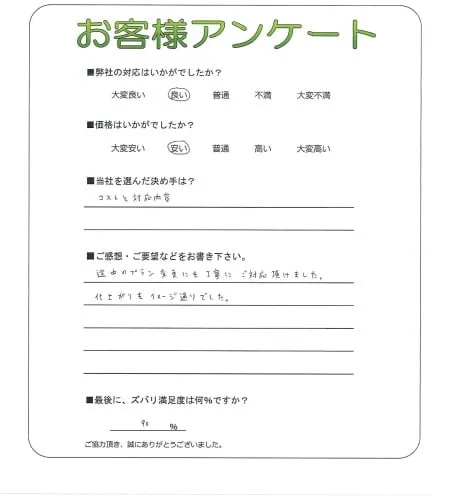 お客様アンケート
■弊社の対応はいかがでしたか？
大変良い 良い 普通 不満 大変不満
■価格はいかがでしたか？
大変安い 安い 普通 高い 大変高い
■当社を選んだ決め手は？
コストと対応内容
■ご感想・ご要望などをお書き下さい。
途中のプラン変更にも丁寧に ご対応頂けました。
仕上がりもイメージ通りでした。
■最後に、ズバリ満足度は何%ですか？
90 %
ご協力頂き、誠にありがとうございました。